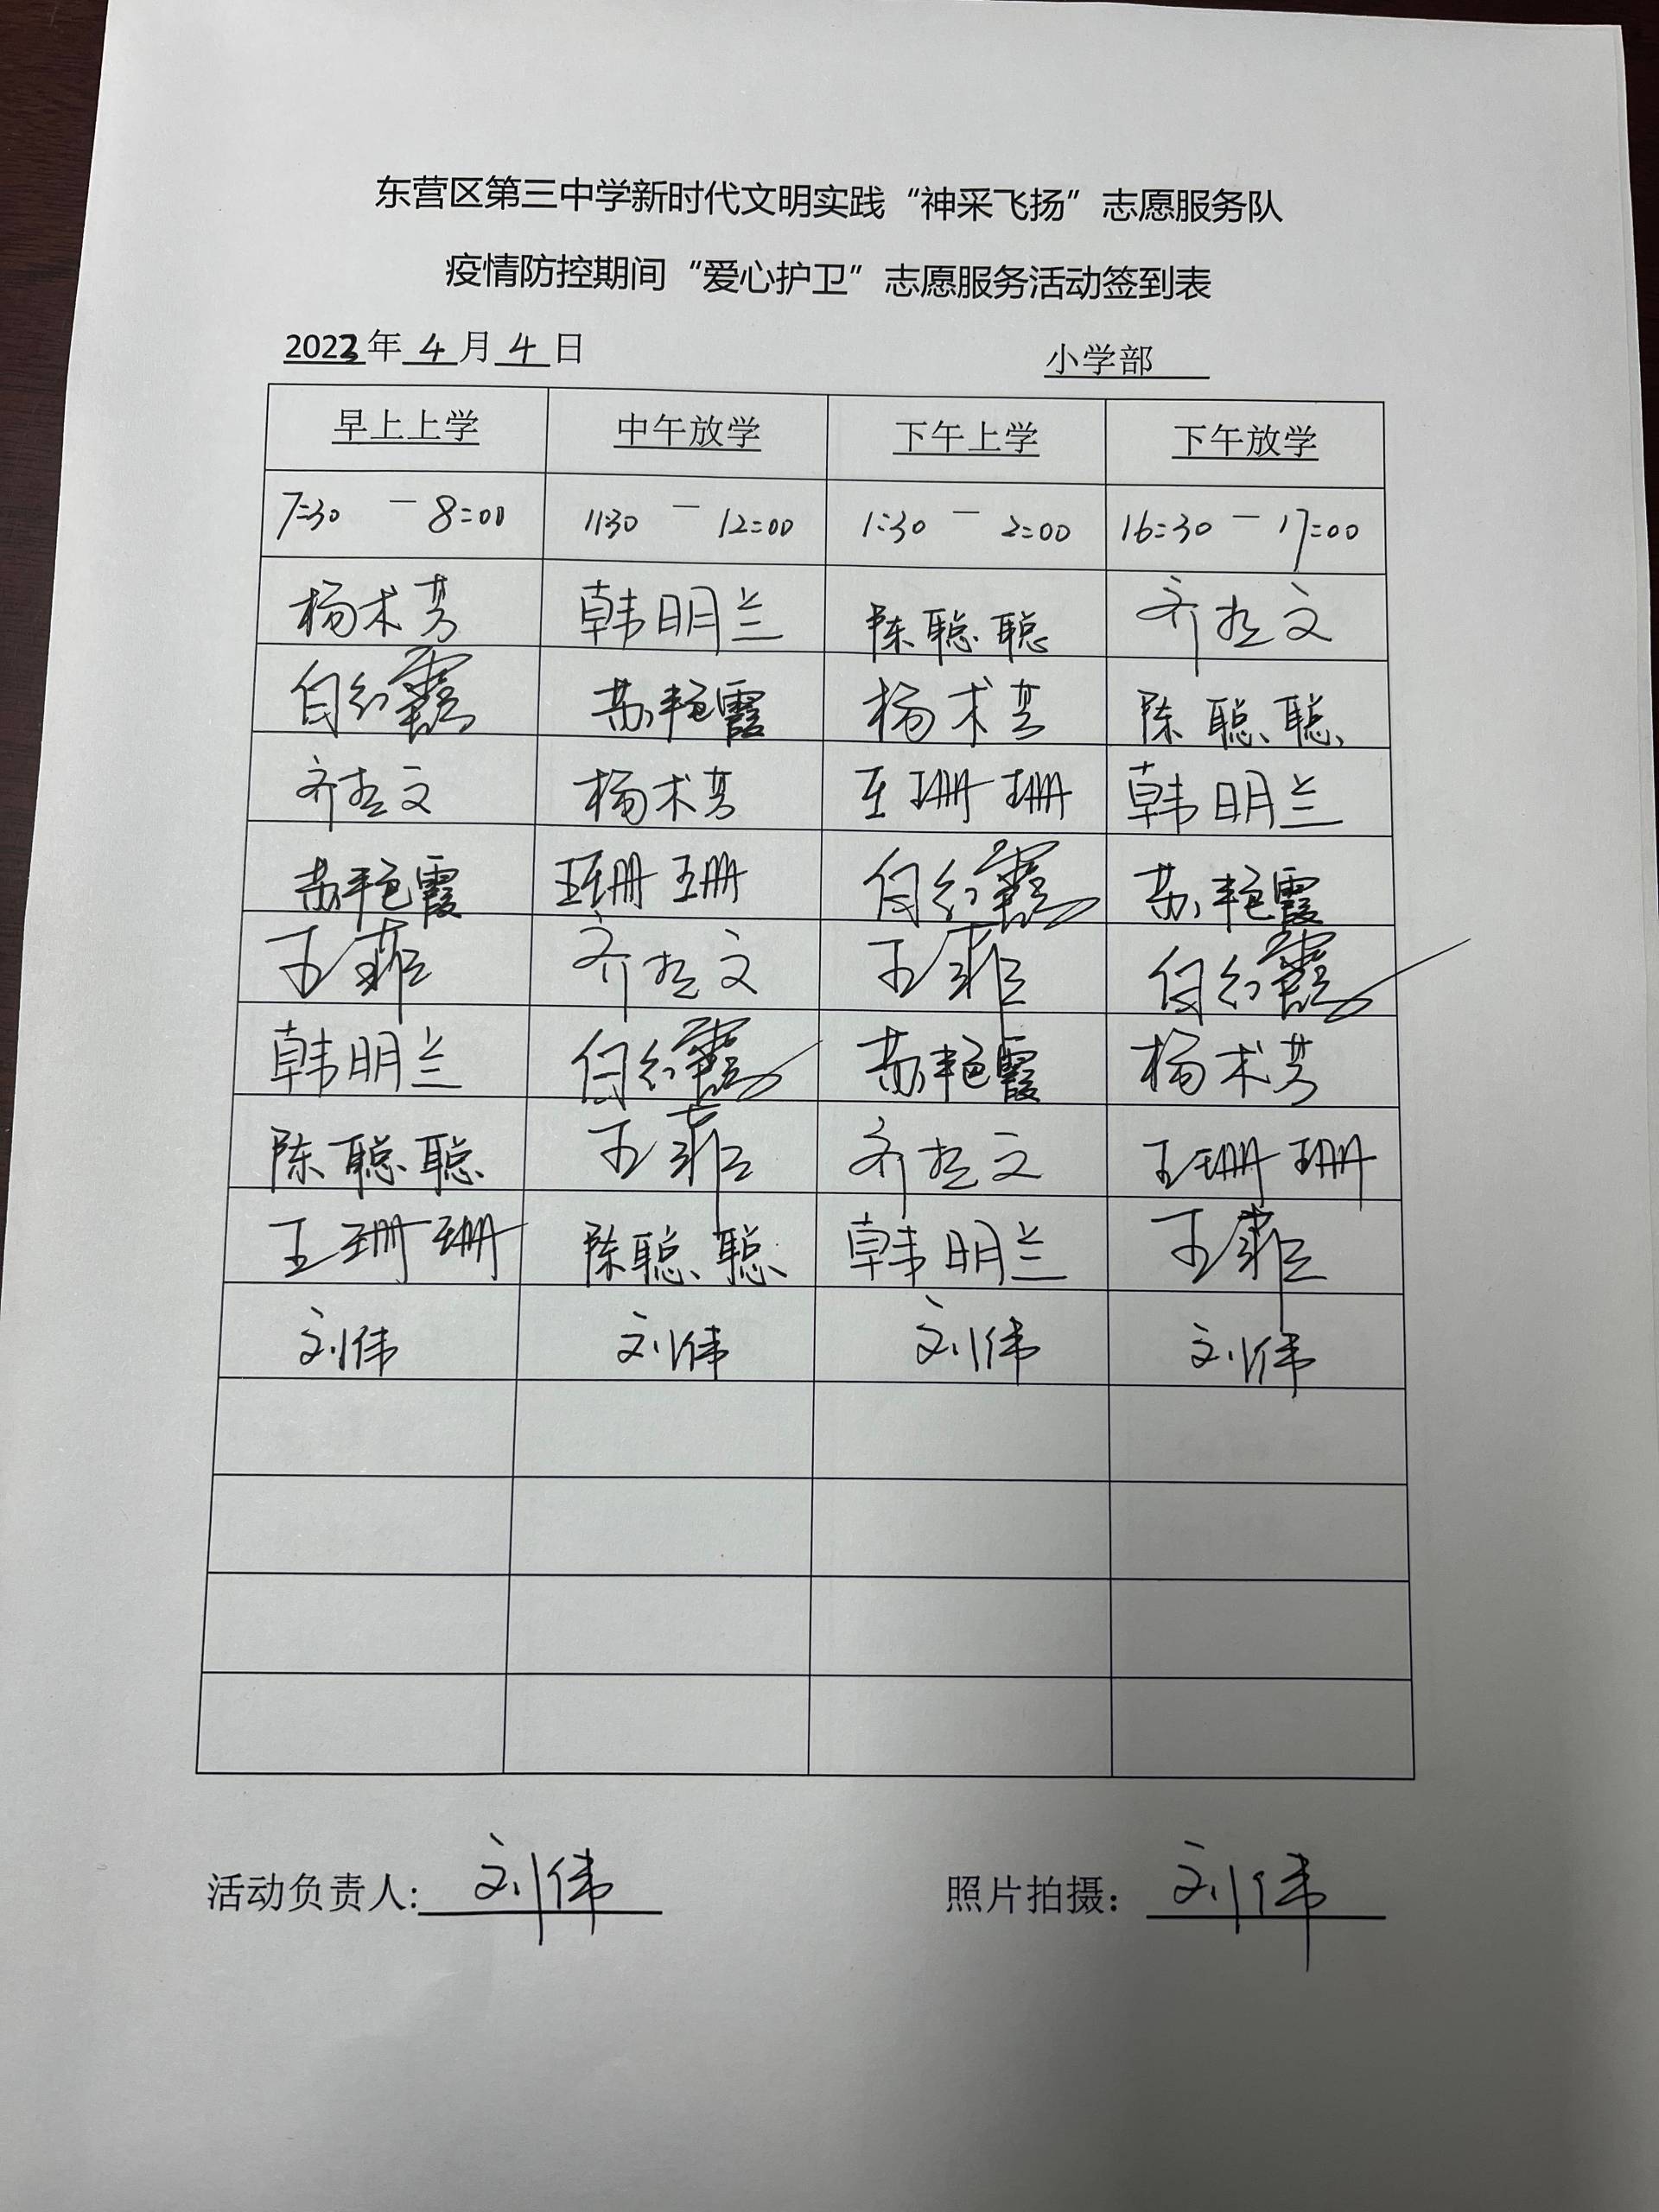 东营区第三中学新时代文明实践“神采飞扬”志愿服务队
疫情防控期间“爱心护卫”志愿服务活动签到表
2023年 4 月 4 日 小学部
早上上学 中午放学 下午上学 下午放学
7:30 — 8:00 11:30 — 12:00 1:30 — 2:00 16:30 — 17:00
杨术芳 韩明兰 陈聪聪 齐文
白红霞 苏艳霞 杨术芳 陈聪聪
齐文 杨术芳 王珊珊 韩明兰
苏艳霞 王珊珊 白红霞 苏艳霞
王菲 齐文 王菲 白红霞
韩明兰 白红霞 苏艳霞 杨术芳
陈聪聪 王菲 齐文 王珊珊
王珊珊 陈聪聪 韩明兰 王菲
刘伟 刘伟 刘伟 刘伟
活动负责人: 刘伟 照片拍摄: 刘伟